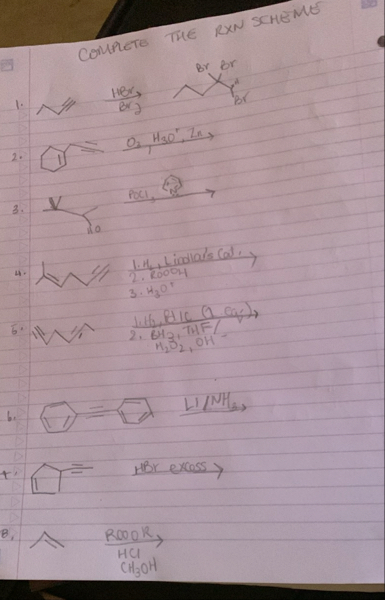 COMPLETE THE RXN SCHEME
1. HBr
Br2
Br Br
H
Br
2. O3, H3O+, Zn
3. POCl3
HO
4. 1. H2, Lindlar's Cat.
2. ROOOH
3. H3O+
5. 1. H2, Pt/C (1 eq.)
2. BH3, THF/
H2O2, OH-
6. Li/NH3
7. HBr excess
8. ROOR
HCl
CH3OH